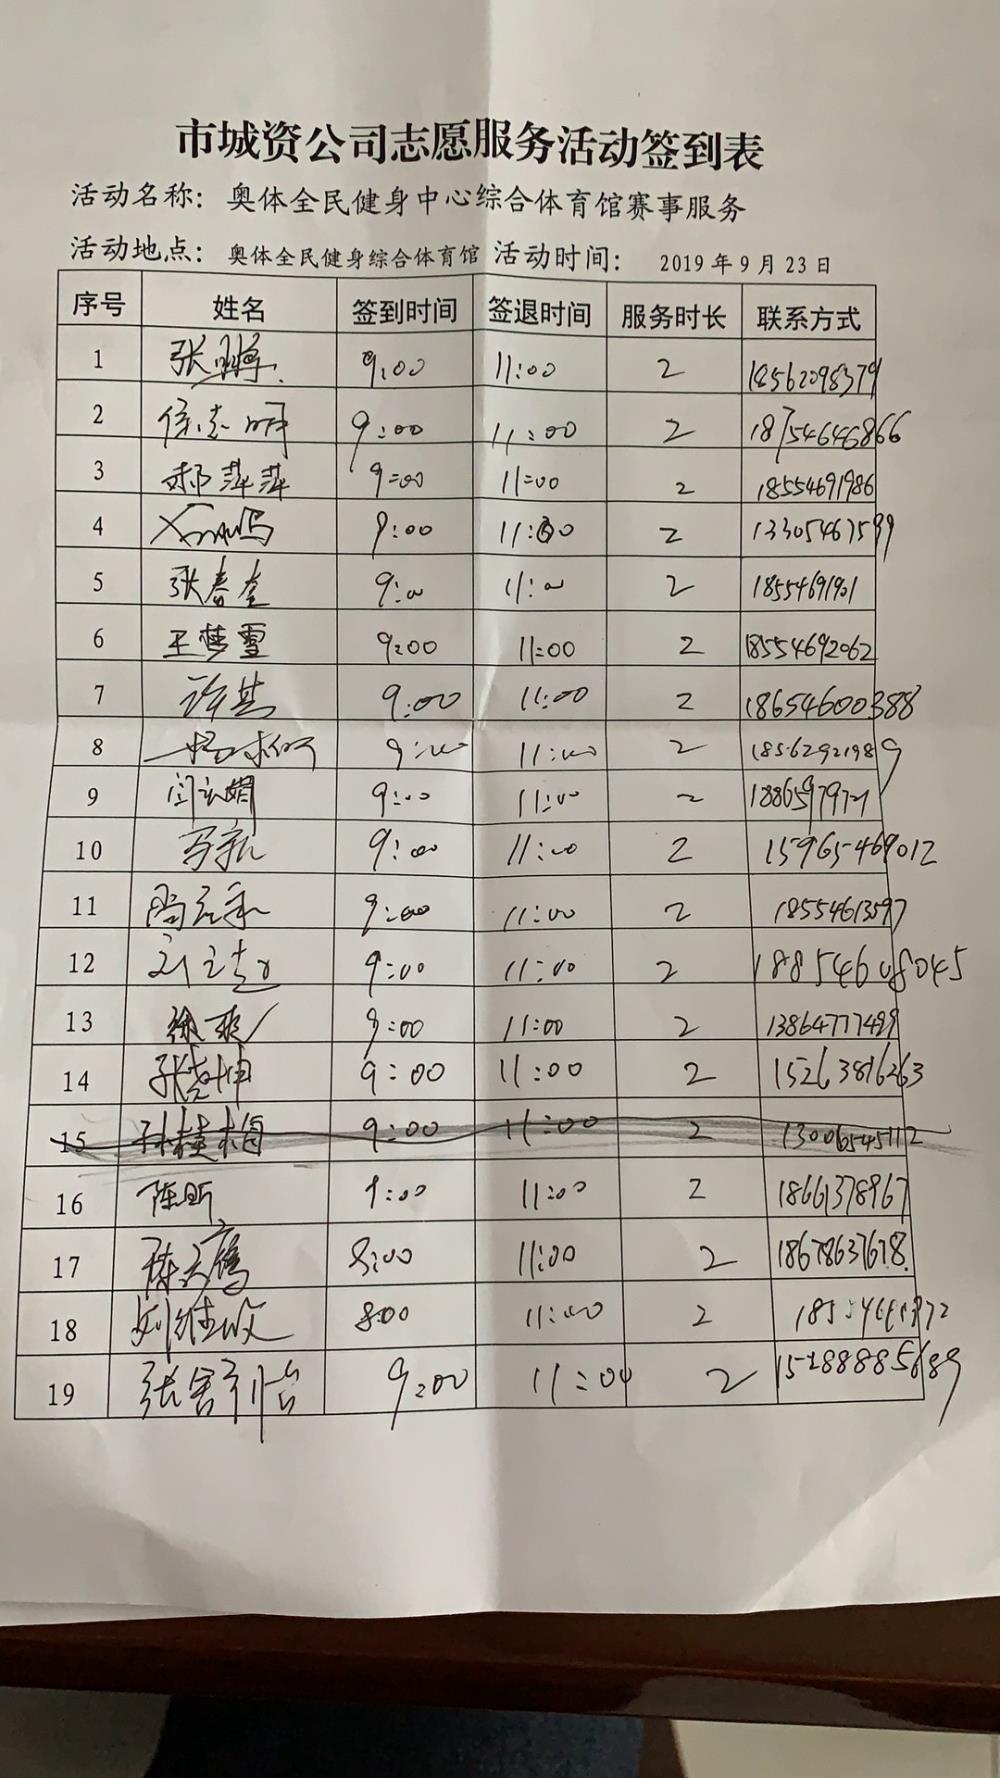 市城资公司志愿服务活动签到表
活动名称：奥体全民健身中心综合体育馆赛事服务
活动地点：奥体全民健身综合体育馆 活动时间：2019年9月23日
序号 姓名 签到时间 签退时间 服务时长 联系方式
1 张鹏 9:00 11:00 2 18562098379
2 徐志明 9:00 11:00 2 18754646866
3 郝萍萍 9:00 11:00 2 18554691986
4 9:00 11:00 2 13305467599
5 张春奎 9:00 11:00 2
6 王梦雪 9:00 11:00 2 18554692062
7 许甚 9:00 11:00 2 186546003888
8 9:00 11:00 2 18562921989
9 闫云娟 9:00 11:00 2 18865979721
10 马新 9:00 11:00 2 15965469012
11 9:00 11:00 2 18554613597
12 9:00 11:00 2
13 徐爽 9:00 11:00 2 13864777499
14 9:00 11:00 2 15263816263
15 孙桂梅 9:00 11:00 2 13006545112
16 陈昕 9:00 11:00 2 18661378967
17 陈天鹰 8:00 11:00 2 18678637678
18 8:00 11:00 2
19 9:00 11:00 2